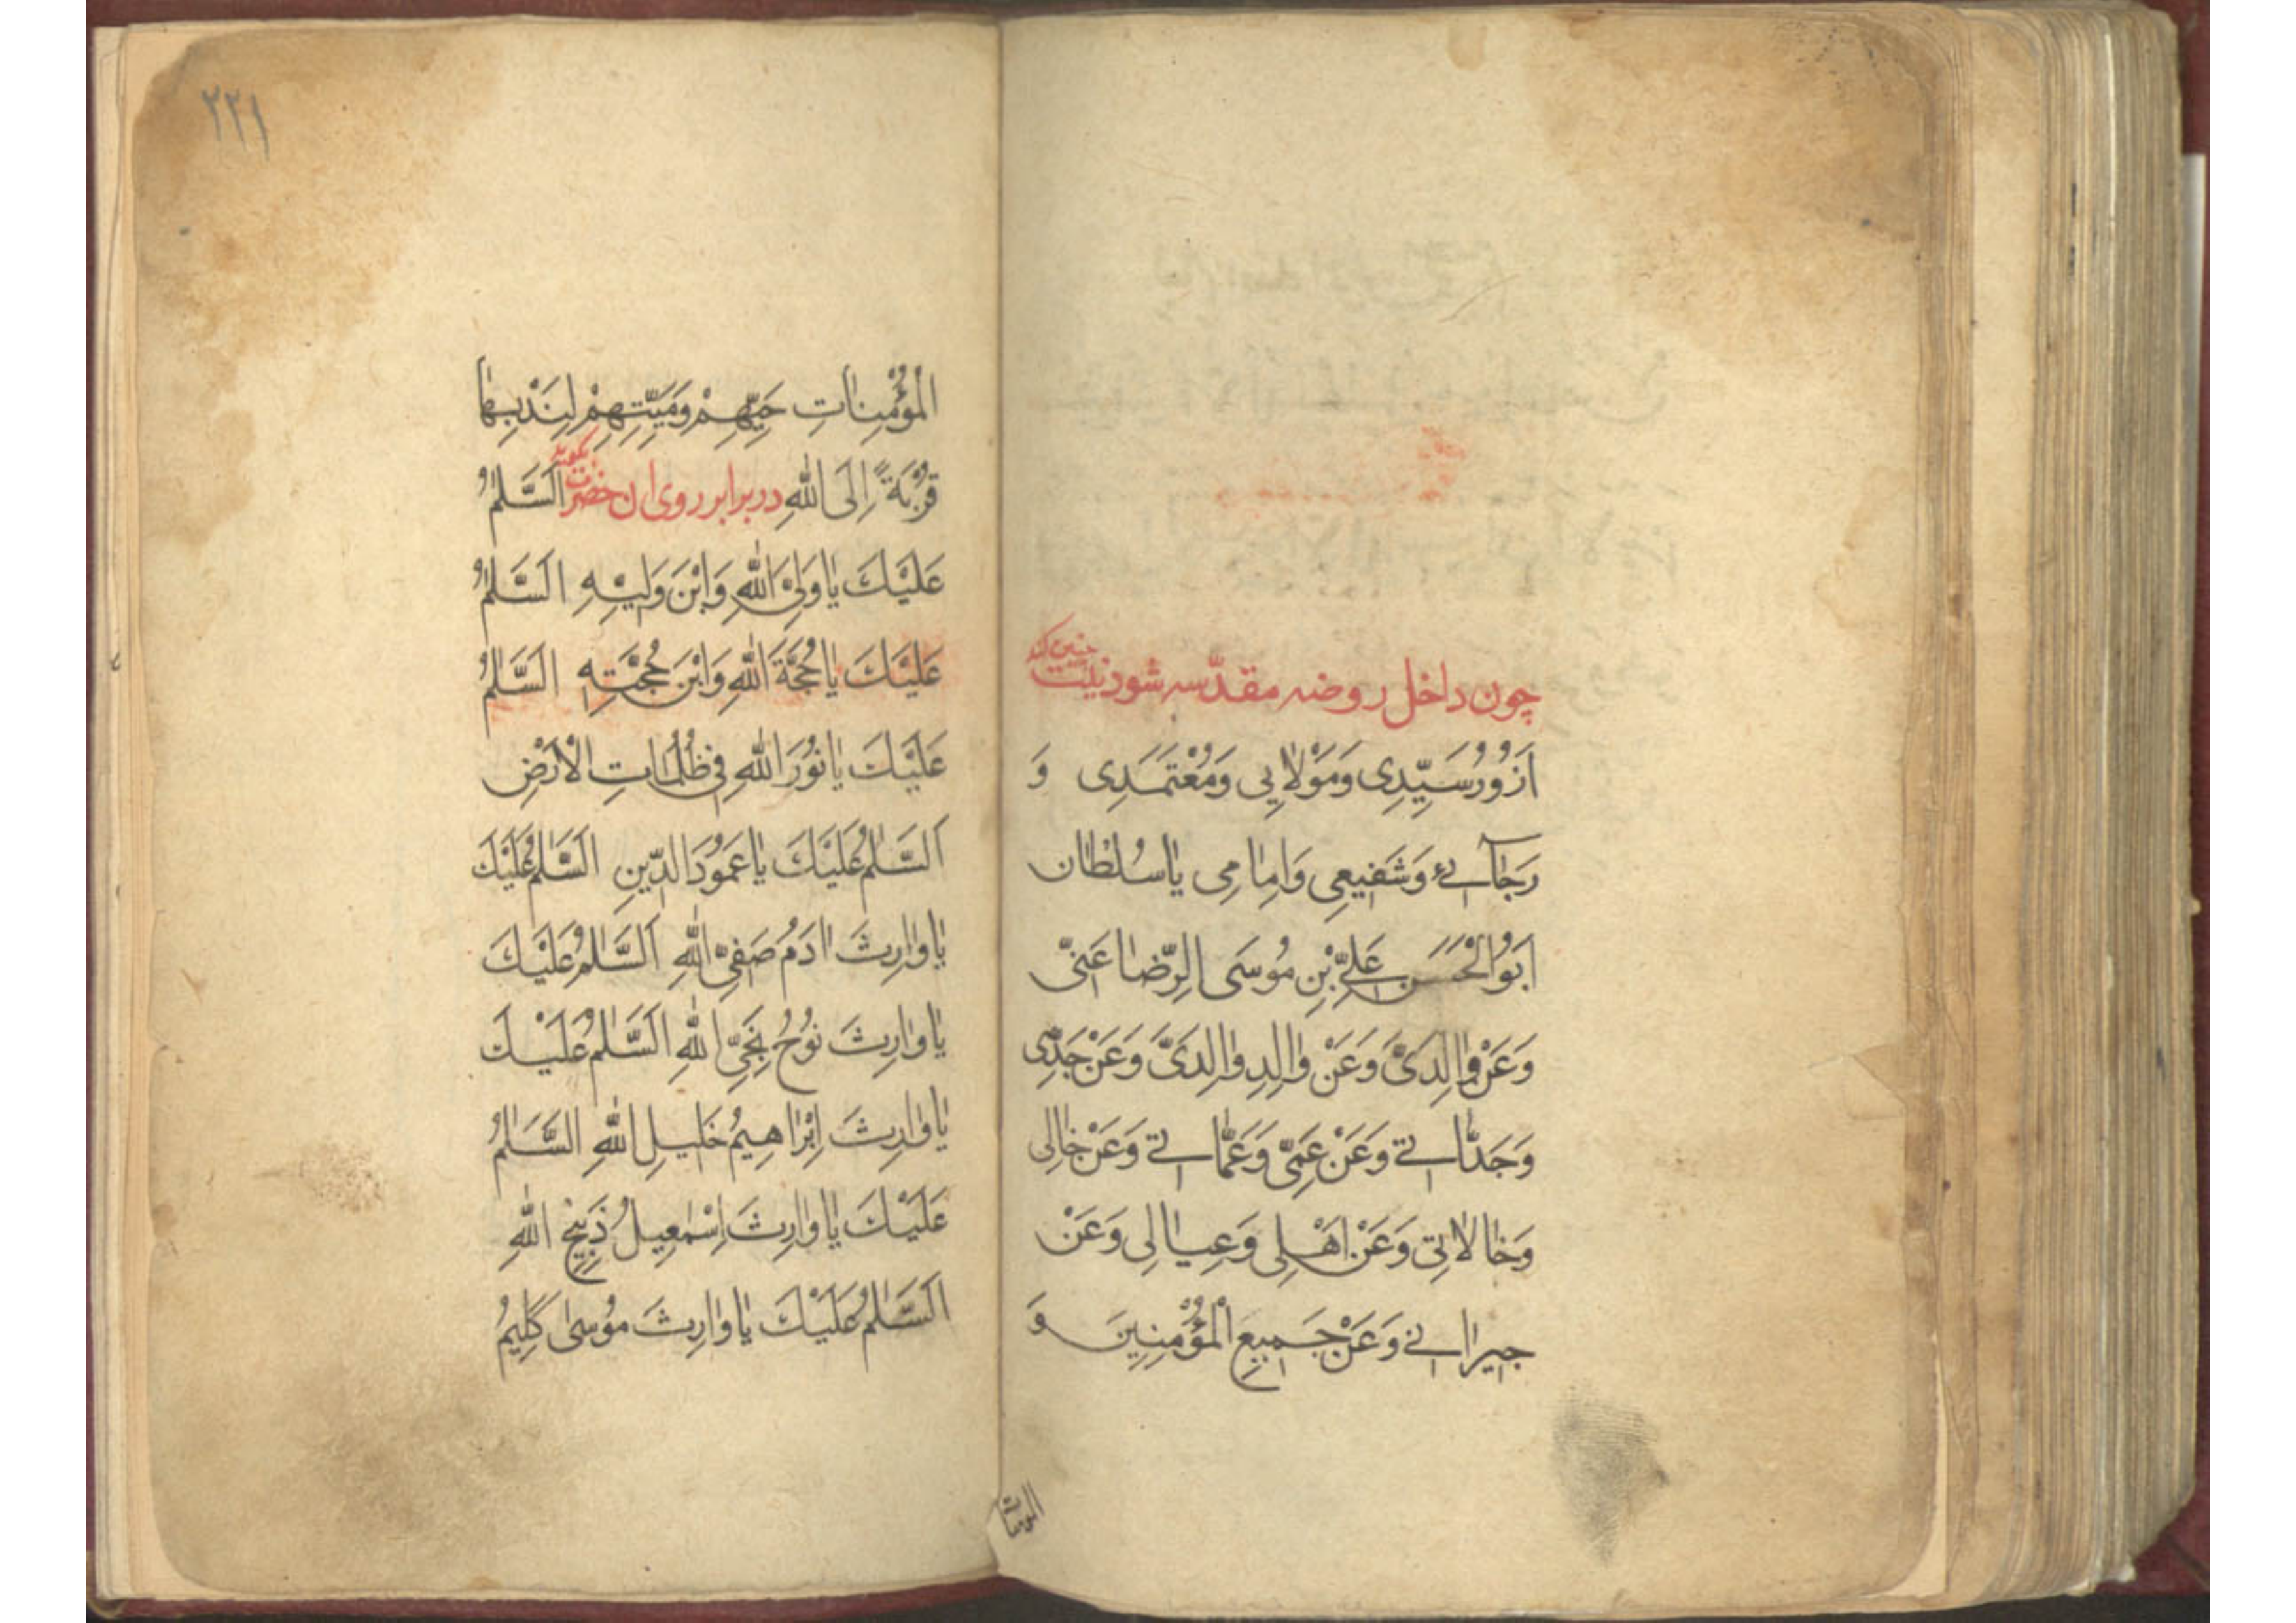 چون داخل روضه مقدّسه شود نیّت چنین کند
اَزُورُ سَیِّدِی وَمَوْلایِی وَمُعْتَمَدِی وَ
رَجآئی وَشَفیعِی وَاِمامِی یا سُلْطان
اَبوُالْحَسَن عَلِیِّ بْنِ مُوسَی الرِّضا عَنّی
وَعَنْ والِدَیَّ وَعَنْ والِدِ والِدَیَّ وَعَنْ جَدّی
وَجَدّاتی وَعَنْ عَمّی وَعَمّاتی وَعَنْ خالِی
وَخالاتِی وَعَنْ اَهْلِی وَعِیالِی وَعَنْ
جیرانی وَعَنْ جَمیعِ الْمُؤْمِنِینَ وَ
المومنات
٢٢١
الْمُؤْمِناتِ حَیِّهِمْ وَمَیِّتِهِمْ لِنَدْبِها
قُرْبَةً اِلَی اللهِ در برابر روی ان حضرت بگوید اَلسَّلٰمُ
عَلَیْكَ یا وَلِیَّ اللهِ وَابْنَ وَلِیِّهِ اَلسَّلٰمُ
عَلَیْكَ یا حُجَّةَ اللهِ وَابْنَ حُجَّتِهِ اَلسَّلٰمُ
عَلَیْكَ یا نُورَ اللهِ فِی ظُلُمٰاتِ الْاَرْضِ
اَلسَّلٰمُ عَلَیْكَ یا عَمُودَ الدِّینِ اَلسَّلٰمُ عَلَیْكَ
یا وٰارِثَ ادَمُ صَفِیِّ اللهِ اَلسَّلٰمُ عَلَیْكَ
یا وٰارِثَ نُوحُ نَجِیِّ اللهِ اَلسَّلٰمُ عَلَیْكَ
یا وٰارِثَ اِبْرٰاهِیمُ خَلیلِ اللهِ اَلسَّلٰمُ
عَلَیْكَ یا وٰارِثَ اِسْمٰعِیلُ ذَبِیحِ اللهِ
اَلسَّلٰمُ عَلَیْكَ یا وٰارِثَ مُوسیٰ کَلِیمُ